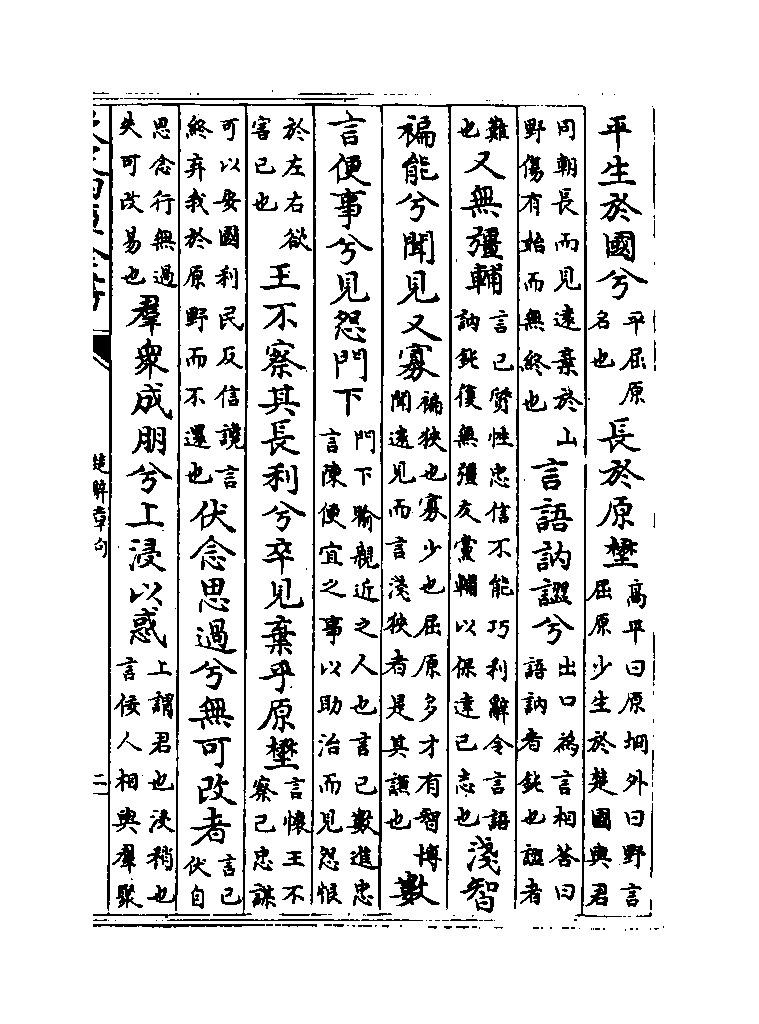 平生於國兮平屈原名也長於原壄高平曰原坰外曰野言屈原少生於楚國與君
同朝長而見遠棄於山野傷有始而無終也言語訥譅兮出口為言相答曰語訥者鈍也譅者
難也又無彊輔言已質性忠信不能巧利辭令言語訥鈍復無彊友黨輔以保達已志也淺智
褊能兮聞見又寡褊狹也寡少也屈原多才有智博聞遠見而言淺狹者是其謙也數
言便事兮見怨門下門下喻親近之人也言已數進忠言陳便宜之事以助治而見怨恨
於左右欲害已也王不察其長利兮卒見棄乎原壄言懷王不察已忠謀
可以安國利民反信讒言終弃我於原野而不還也伏念思過兮無可改者言已伏自
思念行無過失可改易也羣衆成朋兮上浸以惑上謂君也浸稍也言佞人相與羣聚
楚辭章句
二